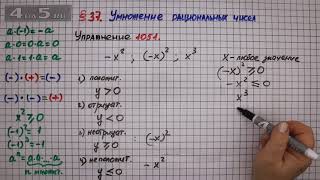 4 на 5
§ 37. Умножение рациональных чисел
Упражнение 1051.
a·(-1)=-a
a·0=0·a=0
(-)·(+)=(-)
(-)·(-)=(+)
x²⩾0
(-1)²=1
(-1)³=-1
aⁿ=a·a·...·a
n множит.
-x², (-x)², x³
1) положит.
y>0
2) отрицат.
y<0
3) неотрицат. : (-x)²
y⩾0
4) неположит. : -x²
y⩽0
x-любое значение
(-x)²⩾0
-x²⩽0
x³